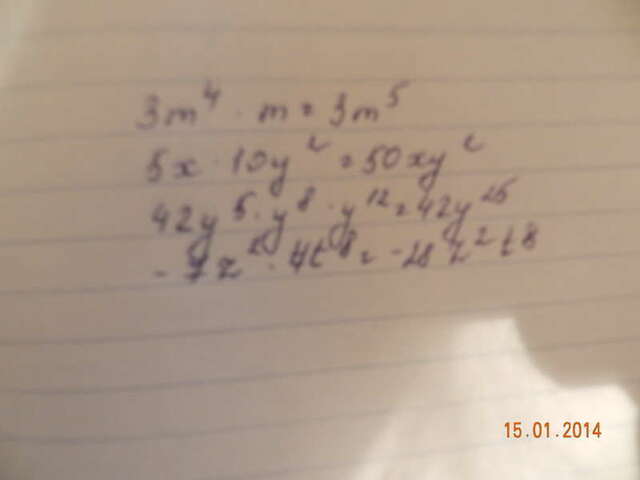 3m⁴ · m = 3m⁵
5x · 10y² = 50xy²
42y⁵ · y⁸ · y¹² = 42y²⁵
-7z² · 4t⁸ = -28z²t⁸
15.01.2014